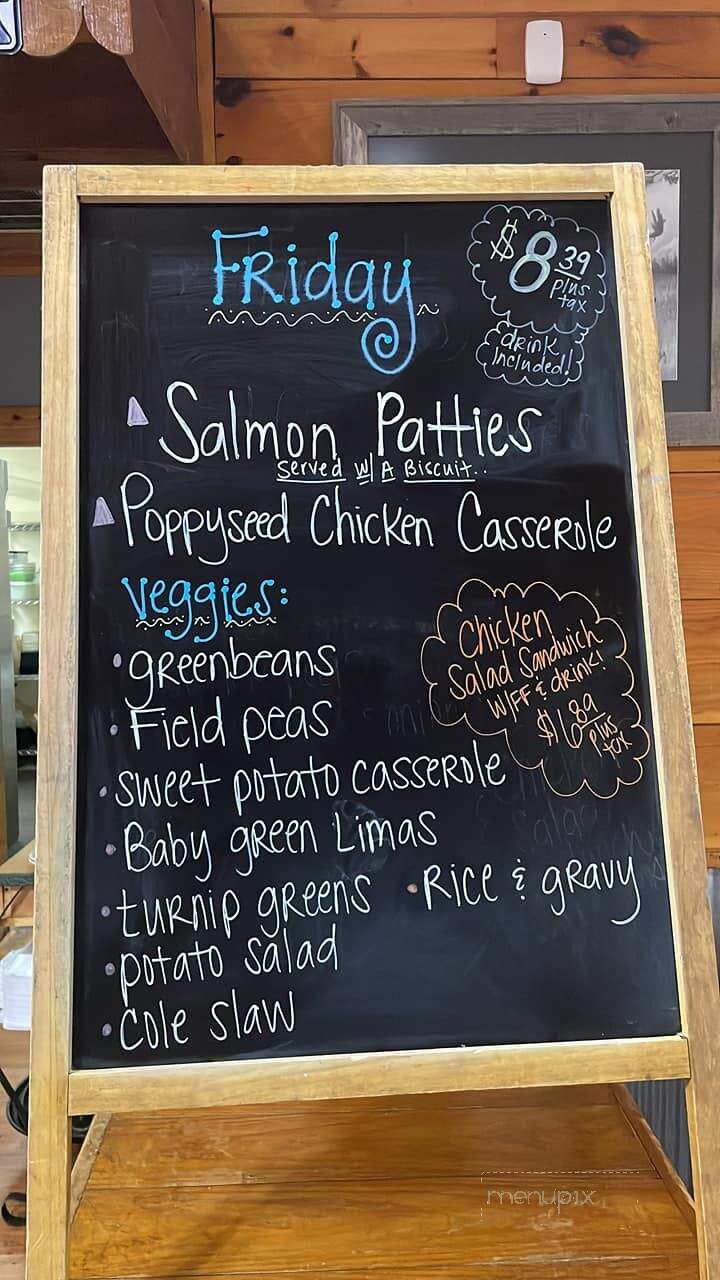 Friday
$8.39
plus
tax
drink
included!
Salmon Patties
Served w/ A Biscuit..
Poppyseed Chicken Casserole
Veggies:
greenbeans
Field peas
sweet potato casserole
Baby green Limas
turnip greens
Rice & gravy
potato salad
Cole slaw
Chicken
Salad Sandwich
W/FF & drink!
$6.89
plus
tax
menupix